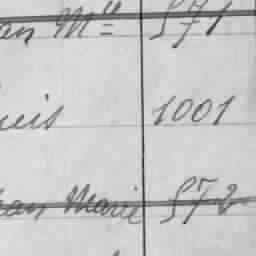 an Mie 571
uis 1001
ean Marie 572